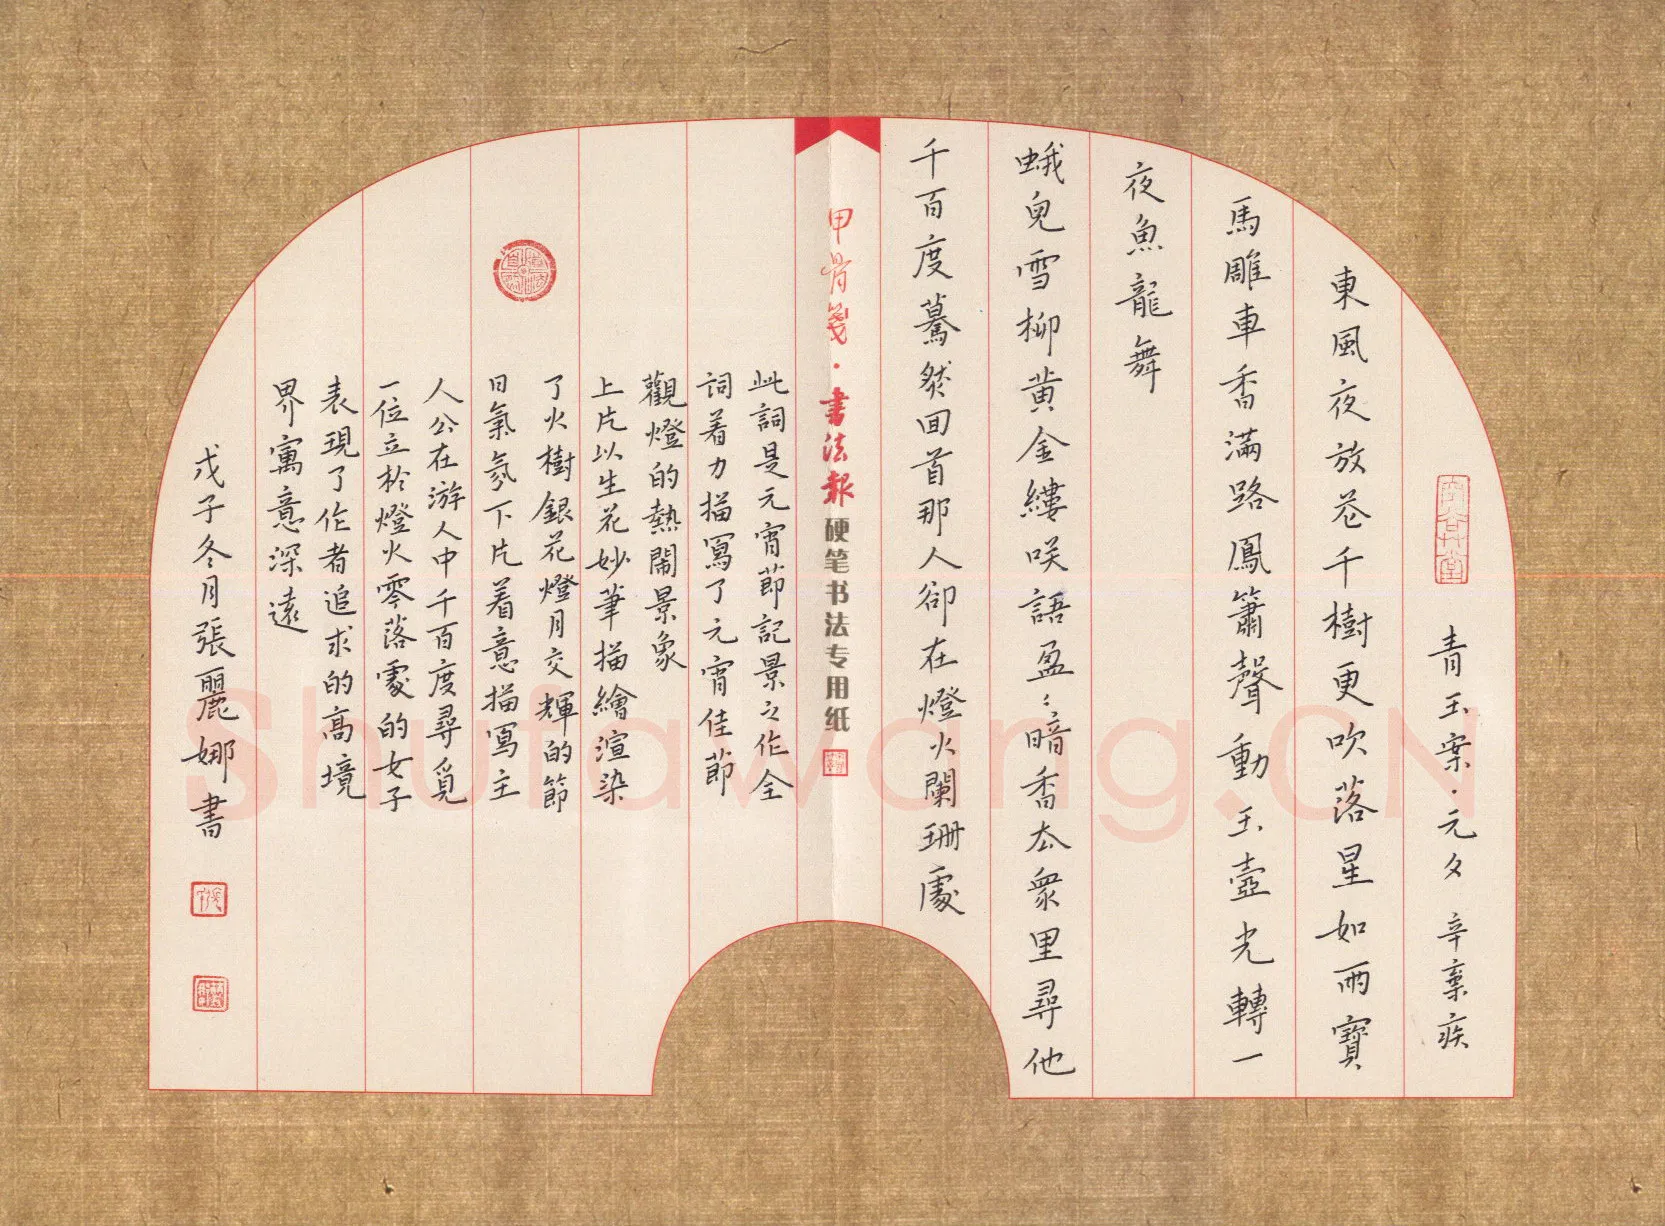 青玉案·元夕 辛棄疾
東風夜放花千樹更吹落星如雨寶
馬雕車香滿路鳳簫聲動玉壺光轉一
夜魚龍舞
蛾兒雪柳黃金縷咲語盈〻暗香去衆里尋他
千百度驀然回首那人卻在燈火闌珊處
甲骨箋·書法報硬笔书法专用纸
此詞是元宵節記景之作全
詞着力描寫了元宵佳節
觀燈的熱鬧景象
上片以生花妙筆描繪渲染
了火樹銀花燈月交輝的節
日氣氛下片着意描寫主
人公在游人中千百度尋覓
一位立於燈火零落處的女子
表現了作者追求的高境
界寓意深遠
戊子冬月張麗娜書
Shufawang.CN